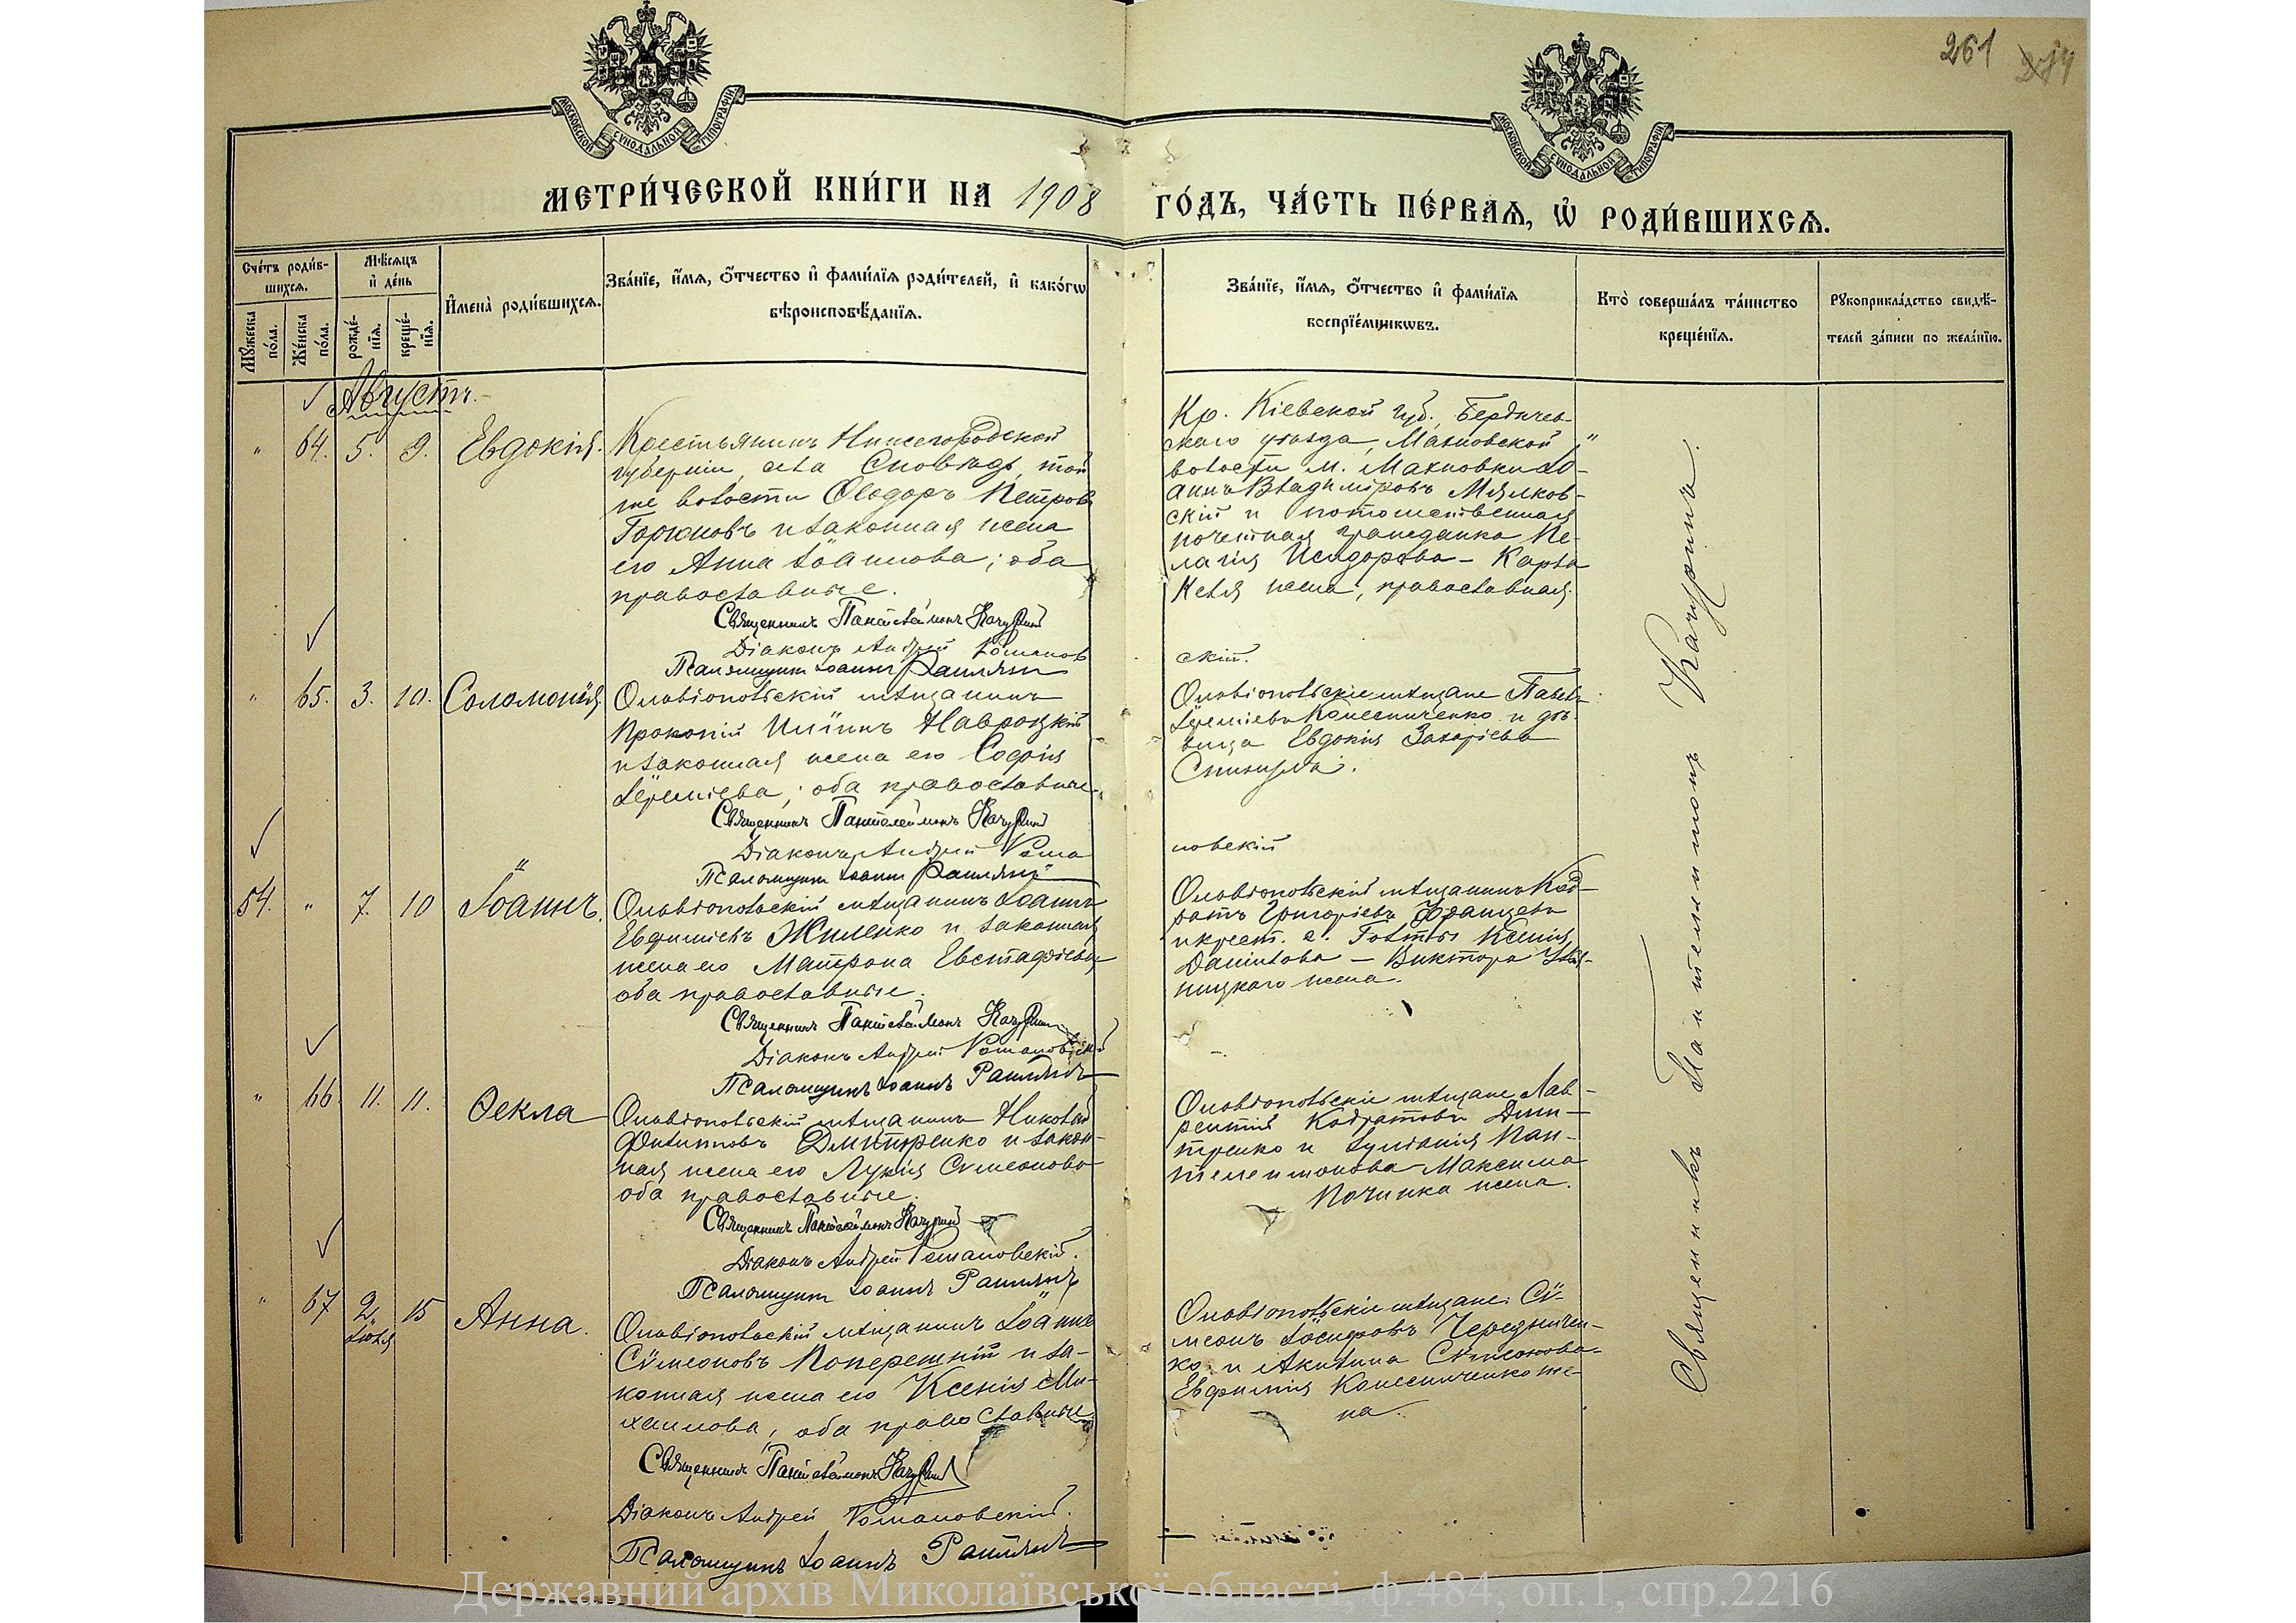 261
МОСКОВСКОЙ СУНОДАЛЬНОЙ ТИПОГРАФІИ
МОСКОВСКОЙ СУНОДАЛЬНОЙ ТИПОГРАФІИ
МЕТРИ́ЧЕСКОЙ КНИ́ГИ НА 1908 ГО́ДЪ, ЧА́СТЬ ПЕ́РВАѦ, Ѡ РОДИ́ВШИХСѦ.
Сче́тъ роди́в-
шихсѧ.
Мѣ́сѧцъ
и҆ де́нь
Мꙋ́жеска
по́ла.
Же́нска
по́ла.
рожде́-
нїѧ.
креще́-
нїѧ.
И҆мена̀ роди́вшихсѧ.
Зва́нїе, и҆́мѧ, ѻ҆́тчество и҆ фами́лїѧ роди́телей, и҆ како́гѡ
вѣроисповѣ́данїѧ.
Зва́нїе, и҆́мѧ, ѻ҆́тчество и҆ фами́лїѧ
воспрїе́мникѡвъ.
Кто̀ соверша́лъ та́инство
креще́нїѧ.
Рꙋкоприкла́дство свидѣ́-
телей за́писи по жела́нїю.
Августъ.
" 64. 5. 9. Евдокія.
Крестьянинъ Нижегородской
губерніи, села Сновѣдь, той
же волости Ѳеодоръ Петровъ
Горюновъ и законная жена
его Анна Іоаннова; оба
православные.
Священникъ Пантелеймонъ Качуринъ
Діаконъ Андрей Романов
Псаломщикъ Іоаннъ
Кр. Кіевской губ. Бердичев-
скаго уѣзда, Махновской
волости м. Махновки Іо-
аннъ Владиміровъ Мялков-
скій и потомственная
почетная гражданка Пе-
лагія Исидорова - Карла
жена, православная.
скій.
" 65. 3. 10. Соломонія
Ольвіопольскій мѣщанинъ
Прокопій Иліинъ Навроцкій
и законная жена его Софія
Іереміева; оба православные.
Священникъ Пантелеймонъ Качуринъ
Діаконъ Андрей Рома
Псаломщикъ Іоаннъ
Ольвіопольскіе мѣщане Павелъ
Іереміевъ Колесниченко и дѣ-
вица Евдокія Захаріева
новскій
54. " 7. 10 Іоаннъ.
Ольвіопольскій мѣщанинъ Іоаннъ
Евфиміевъ Жиленко и законная
жена его Матрона Евстафіева,
оба православные.
Священникъ Пантелеймонъ Качуринъ
Діаконъ Андрей Романовскій
Псаломщикъ Іоаннъ
Ольвіопольскій мѣщанинъ Код-
ратъ Григоріевъ
и крест. с. Голты Ксенія
Даніилова - Виктора
ницкаго жена.
" 66. 11. 11. Ѳекла
Ольвіопольскій мѣщанинъ Николай
Филипповъ Дмитренко и закон-
ная жена его Лукія Сѵмеонова
оба православные.
Священникъ Пантелеймонъ Качуринъ
Діаконъ Андрей Романовскій.
Псаломщикъ Іоаннъ
Ольвіопольскіе мѣщане Лав-
рентій Кодратовъ Дми-
тренко и Іуліанія Пан-
телеимонова - Максима
Починка жена.
" 67 2 15 Анна.
Іюля
Ольвіопольскій мѣщанинъ Іоаннъ
Сѵмеоновъ Поперешній и за-
конная жена его Ксенія Ми-
хаилова, оба православные.
Священникъ Пантелеймонъ Качуринъ
Діаконъ Андрей Романовскій.
Псаломщикъ Іоаннъ
Ольвіопольскіе мѣщане: Сѵ-
меонъ Іосифовъ Чередничен-
ко и Акилина Сѵмеонова
Евфимія Колесниченко же-
на.
Священникъ Пантелеимонъ Качуринъ.
Державний архів Миколаївської області, ф.484, оп.1, спр.2216